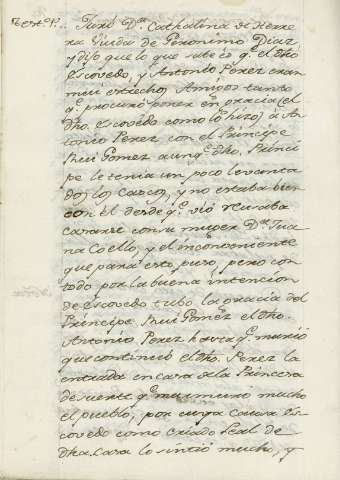 Test.º 1º.. Juró D.ª Cathalina de Herre
ra Viuda de Geronimo Diaz
y dijo que lo que save es q.e el dho
Escovedo, y Antonio Perez eran
mui estrechos Amigos tanto
q.e procuró poner en gracia (el
dho. Escovedo como lo hizo) à An
tonio Perez con el Principe
Rui Gomez aunq.e dho. Princi
pe le tenia un poco levanta
dos los cascos, y no estaba bien
con el desde q.e vió reusaba
casarse con su muger D.ª Jua
na Coello, y el inconveniente
que para esto puso, pero con
todo por la buena intencion
de Escovedo tubo la gracia del
Principe Rui Gomez el dho.
Antonio Perez hasta q.e murió
que continuó el dho. Perez la
entrada en casa de la Princesa
de suerte q.e murmuró mucho
el pueblo, por cuya causa Es
covedo como criado leal de
dha. casa lo sintió mucho, y